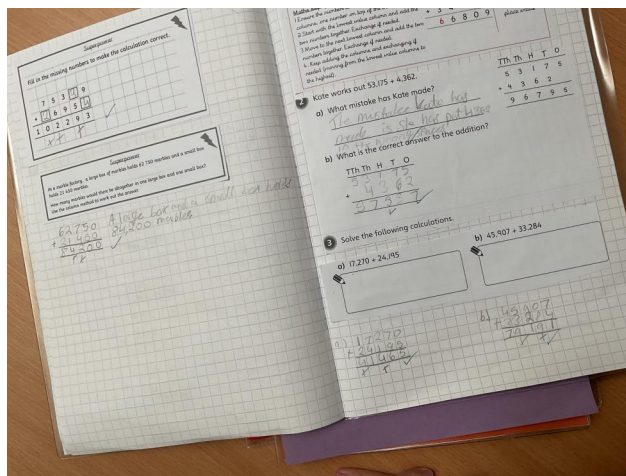 Superpower
Fill in the missing numbers to make the calculation correct.
7 5 3 4 9
+ 2 6 9 5 4
1 0 2 2 9 3
Superpower
At a marble factory, a large box of marbles holds 62 750 marbles and a small box
holds 21 450 marbles.
How many marbles would there be altogether in one large box and one small box?
Use the column method to work out the answer.
62750
+ 21450
84200
A large box and a small box holds
84,200 marbles
1 Ensure the numbers
columns, one number on top of the
2 Start with the lowest value column and add the
two numbers together. Exchange if needed.
3 Move to the next lowest column and add the two
numbers together. Exchange if needed.
4. Keep adding the columns and exchanging if
needed (moving from the lowest value columns to
the highest).
6 6 8 0 9
2 Kate works out 53,175 + 4,362.
a) What mistake has Kate made?
The mistake Kate has
made is she has put
in the wrong
TTh Th H T O
5 3 1 7 5
+ 4 3 6 2
9 6 7 9 5
b) What is the correct answer to the addition?
TTh Th H T O
53175
+ 4362
57537
3 Solve the following calculations.
a) 17,270 + 24,195
b) 45,907 + 33,284
a) 17270
+ 24195
41465
b) 45907
+ 33284
79191